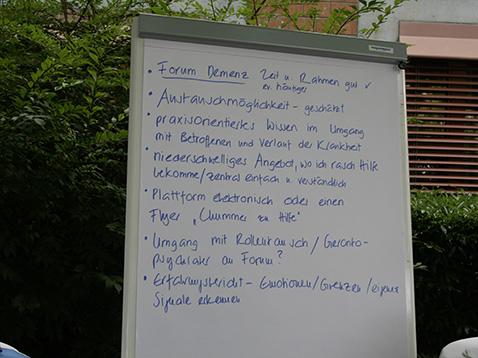 • Forum Demenz Zeit u. Rahmen gut ✓
ev. häufiger
• Austauschmöglichkeit - geschätzt
• praxisorientiertes Wissen im Umgang
mit Betroffenen und Verlauf der Krankheit
• niederschwelliges Angebot, wo ich rasch Hilfe
bekomme/zentral einfach u. verständlich
• Plattform elektronisch oder einen
Flyer „Chummer zu Hilfe"
• Umgang mit Rollentausch/Geronto-
psychiater am Forum?
• Erfahrungsbericht - Emotionen/Grenzen/eigene
Signale erkennen